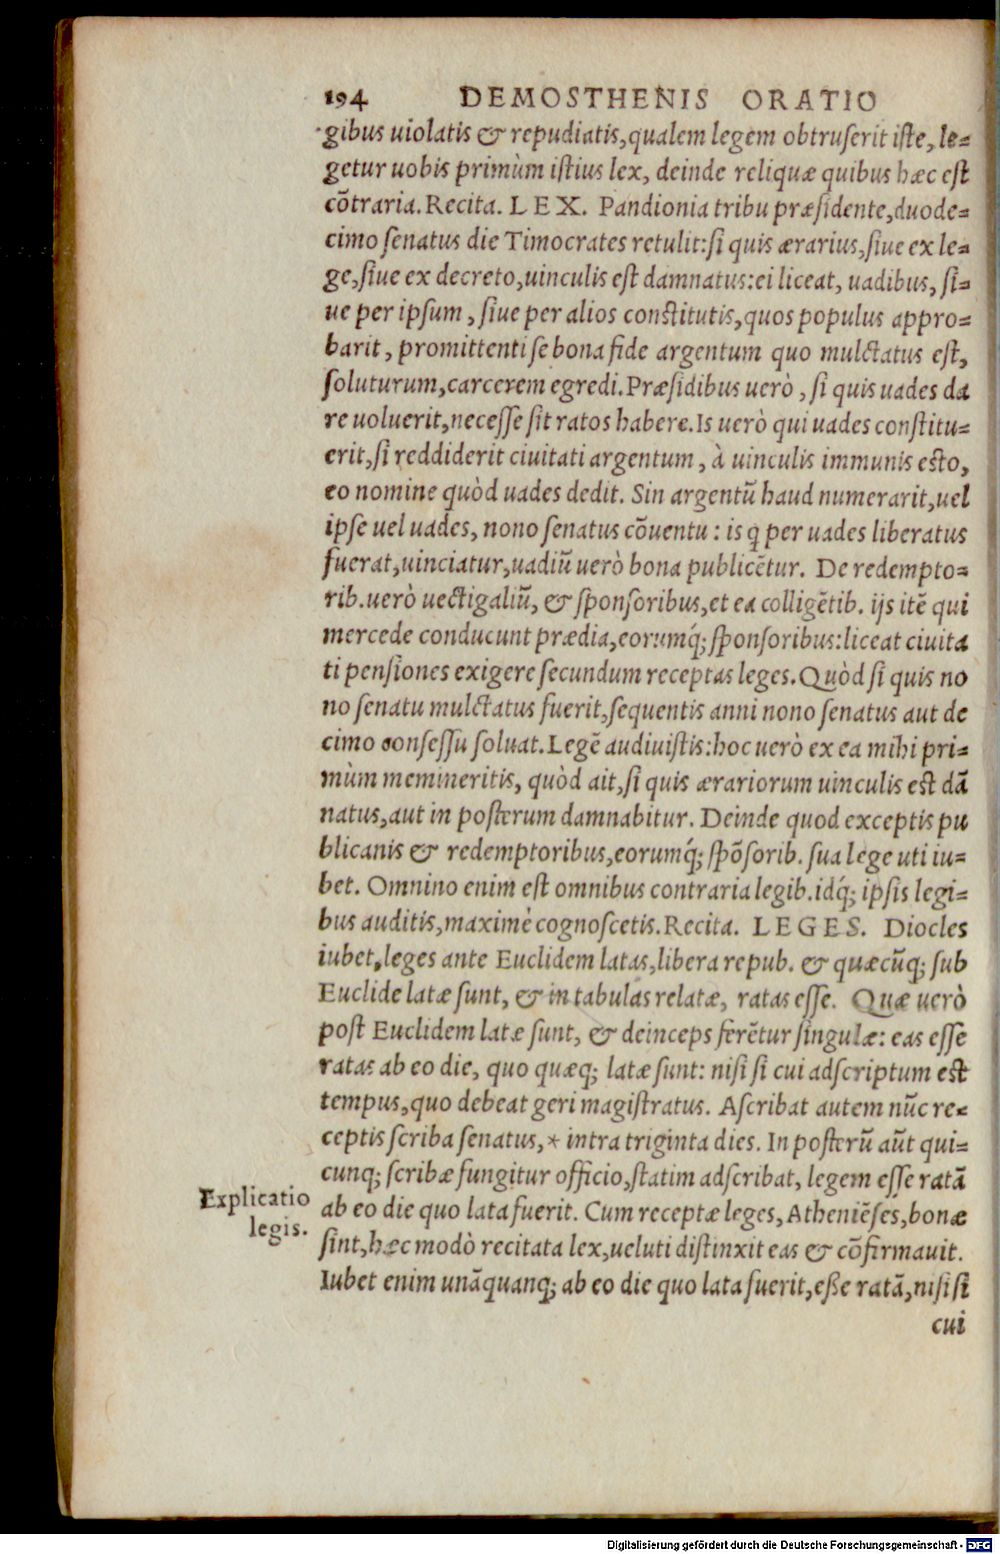 194 DEMOSTHENIS ORATIO
gibus uiolatis & repudiatis, qualem legem obtruserit iste, le=
getur uobis primùm istius lex, deinde reliquæ quibus hæc est
cõtraria. Recita. LEX. Pandionia tribu præsidente, duode=
cimo senatus die Timocrates retulit: si quis ærarius, siue ex le=
ge, siue ex decreto, uinculis est damnatus: ei liceat, uadibus, si=
ue per ipsum, siue per alios constitutis, quos populus appro=
barit, promittenti se bona fide argentum quo mulctatus est,
soluturum, carcerem egredi. Præsidibus uerò, si quis uades da
re uoluerit, necesse sit ratos habere. Is uerò qui uades constitu=
erit, si reddiderit ciuitati argentum, à uinculis immunis esto,
eo nomine quòd uades dedit. Sin argentũ haud numerarit, uel
ipse uel uades, nono senatus cõuentu: is q̃ per uades liberatus
fuerat, uinciatur, uadiũ uerò bona publicẽtur. De redempto=
rib. uerò uectigaliũ, & sponsoribus, et ea colligẽtib. ijs itẽ qui
mercede conducunt prædia, eorumq́; sponsoribus: liceat ciuita
ti pensiones exigere secundum receptas leges. Quòd si quis no
no senatu mulctatus fuerit, sequentis anni nono senatus aut de
cimo consessu soluat. Legẽ audiuistis: hoc uerò ex ea mihi pri=
mùm memineritis, quòd ait, si quis ærariorum uinculis est dã
natus, aut in posterum damnabitur. Deinde quod exceptis pu
blicanis & redemptoribus, eorumq́; spõsorib. sua lege uti iu=
bet. Omnino enim est omnibus contraria legib. idq́; ipsis legi=
bus auditis, maximè cognoscetis. Recita. LEGES. Diocles
iubet, leges ante Euclidem latas, libera repub. & quæcũq; sub
Euclide latæ sunt, & in tabulas relatæ, ratas esse. Quæ uerò
post Euclidem latæ sunt, & deinceps ferẽtur singulæ: eas esse
ratas ab eo die, quo quæq; latæ sunt: nisi si cui adscriptum est
tempus, quo debeat geri magistratus. Ascribat autem nũc re=
ceptis scriba senatus, * intra triginta dies. In posterũ aũt qui=
cunq; scribæ fungitur officio, statim adscribat, legem esse ratã
Explicatio legis.
ab eo die quo lata fuerit. Cum receptæ leges, Atheniẽses, bonæ
sint, hæc modò recitata lex, ueluti distinxit eas & cõfirmauit.
Iubet enim unãquanq; ab eo die quo lata fuerit, eße ratã, nisi si
cui
Digitalisierung gefördert durch die Deutsche Forschungsgemeinschaft - DFG